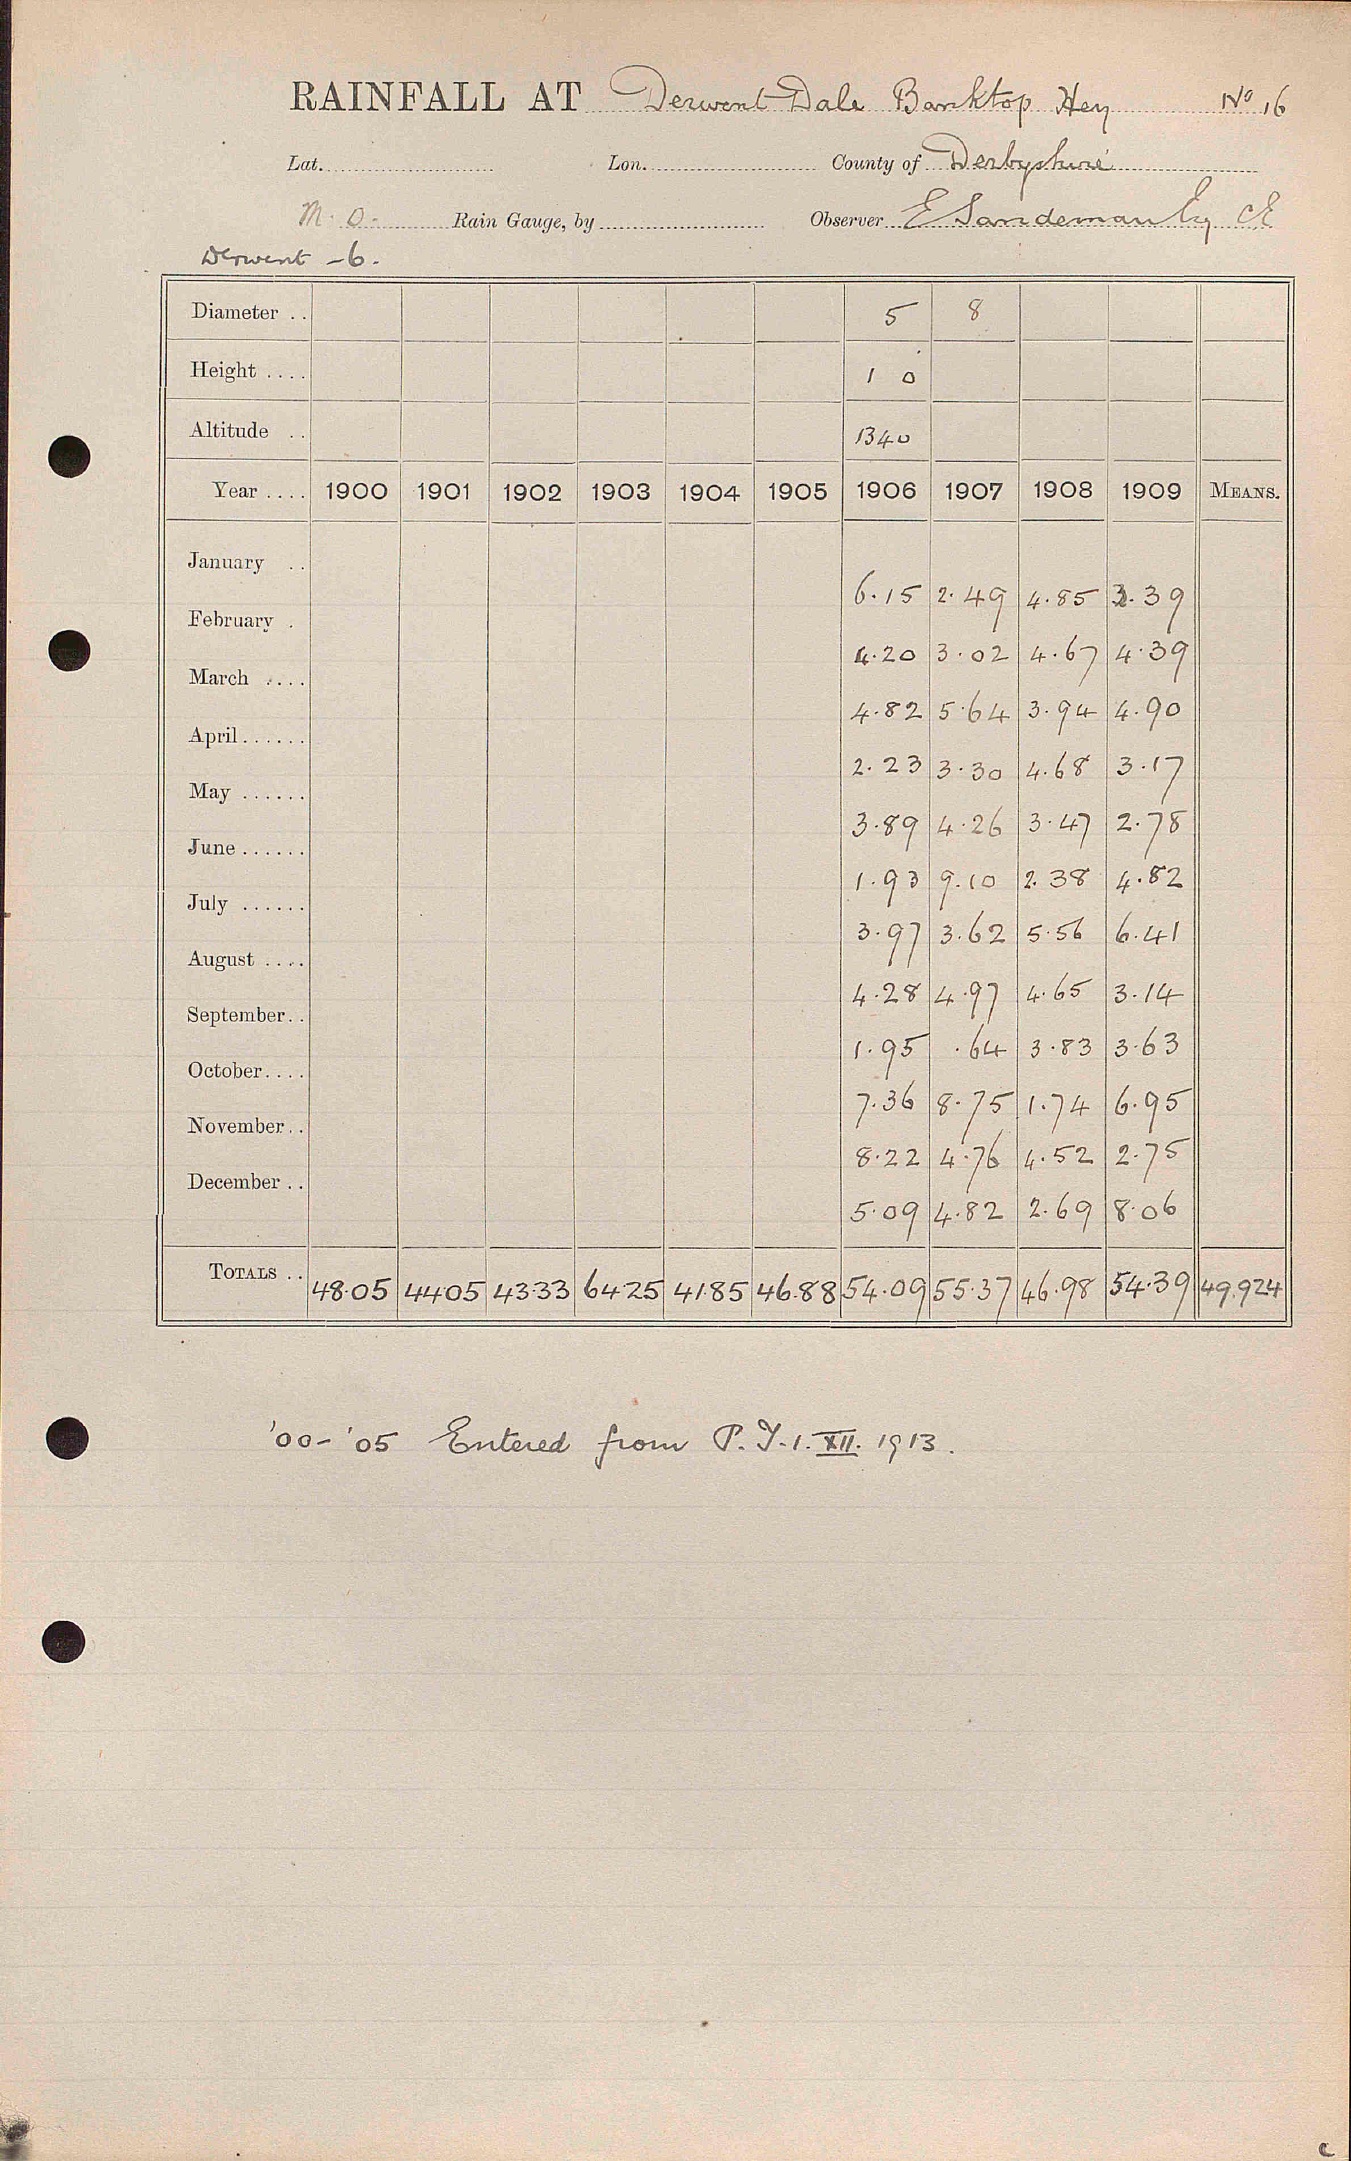 RAINFALL AT Derwent Dale Banktop Hey No 16
Lat. Lon. County of Derbyshire
M. O. Rain Gauge, by Observer E Sandeman Esq CE
Derwent -6.
Diameter .. 5 8
Height .... 1 0
Altitude .. 1340
Year .... 1900 1901 1902 1903 1904 1905 1906 1907 1908 1909 MEANS.
January .. 6.15 2.49 4.85 3.39
February . 4.20 3.02 4.67 4.39
March .... 4.82 5.64 3.94 4.90
April...... 2.23 3.30 4.68 3.17
May ...... 3.89 4.26 3.47 2.78
June ...... 1.93 9.10 2.38 4.82
July ...... 3.97 3.62 5.56 6.41
August .... 4.28 4.97 4.65 3.14
September.. 1.95 .64 3.83 3.63
October.... 7.36 8.75 1.74 6.95
November.. 8.22 4.76 4.52 2.75
December .. 5.09 4.82 2.69 8.06
TOTALS .. 48.05 44.05 43.33 64.25 41.85 46.88 54.09 55.37 46.98 54.39 49.924
'00-'05 Entered from P. T. 1. XII. 1913.
c